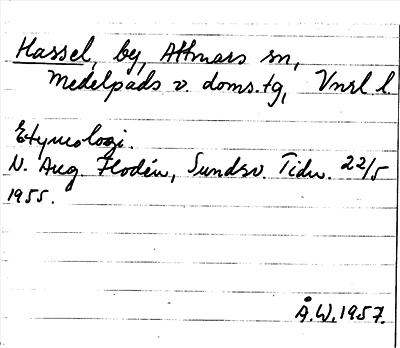 Hassel, by, Attmars sn,
Medelpads v. doms.tg, Vnrl l
Etymologi.
N. Aug. Flodén, Sundsv. Tidn. 22/5
1955.
Å.W.1957.